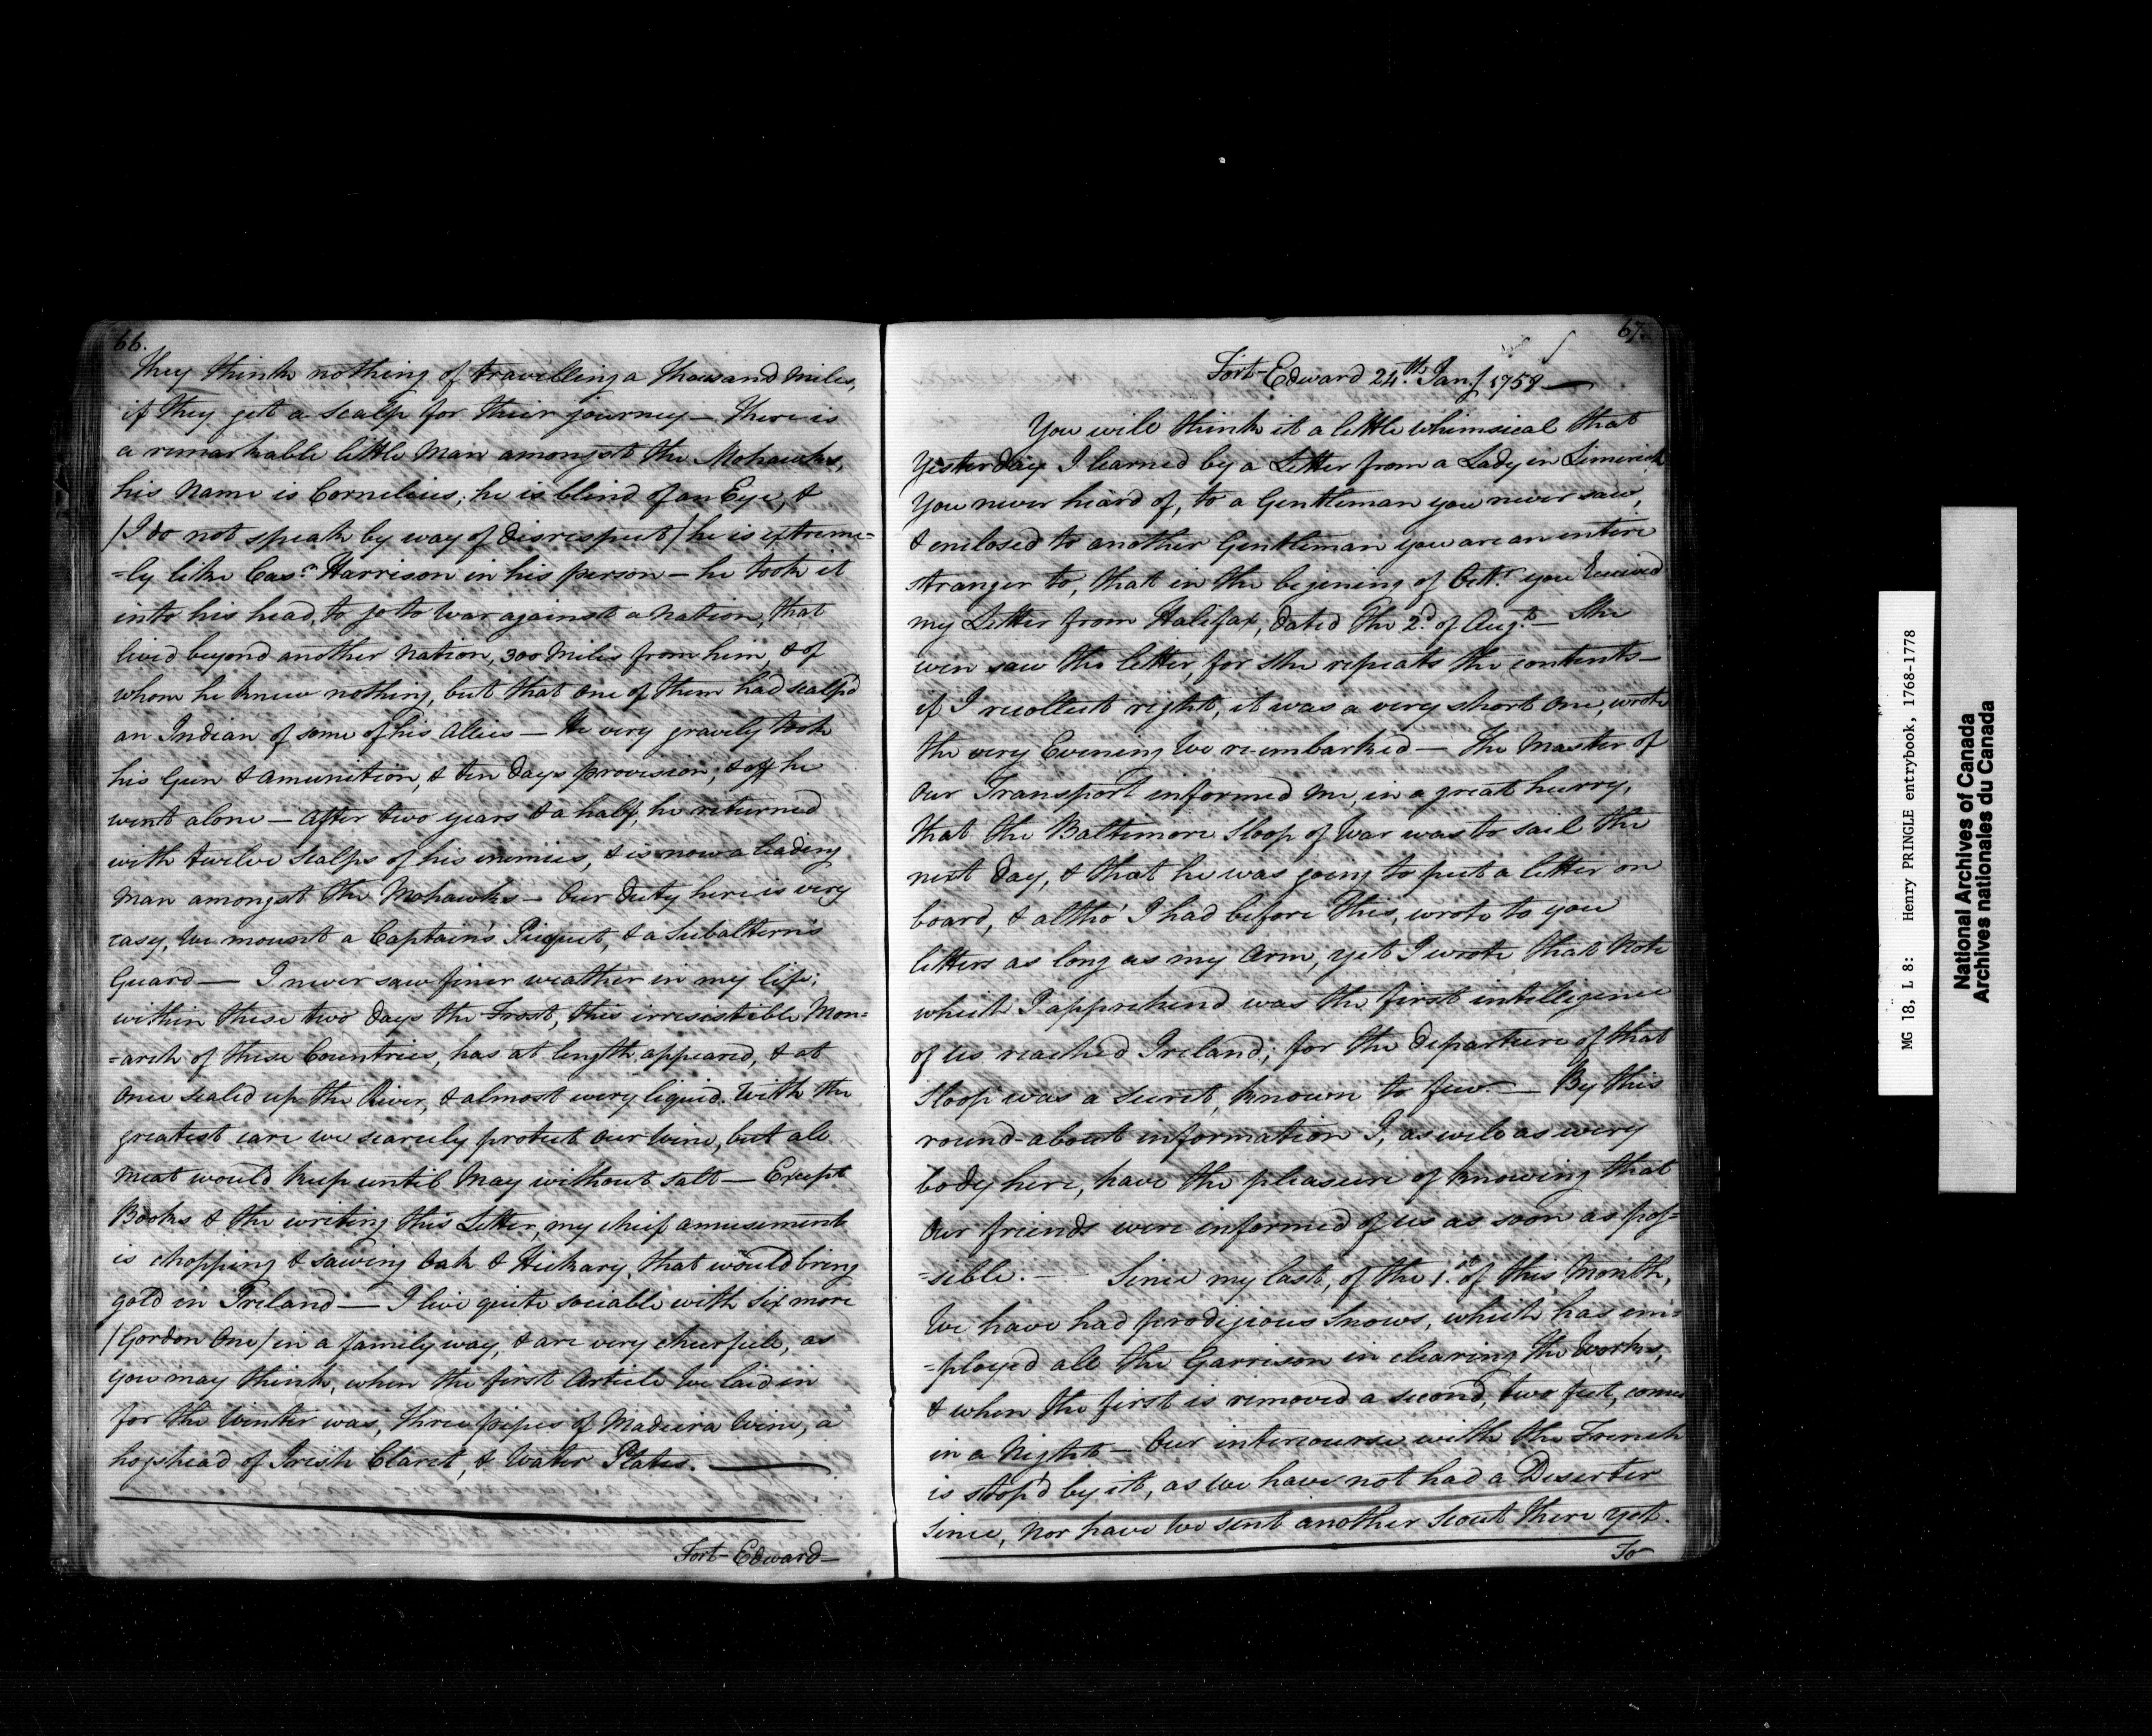 66.
They think nothing of travelling a thousand miles,
if they get a scalp for their journey — There is
a remarkable little Man amongst the Mohawks,
his name is Cornelius; he is blind of an Eye, &
/I do not speak by way of disrespect/ he is extreme=
=ly like Harrison in his person — he took it
into his head, to go to War against a nation, that
lived beyond another nation, 300 miles from him, & of
whom he knew nothing, but that one of them had scalp'd
an Indian of some of his Allies — He very gravely took
his Gun & amunition, & ten days provision, & off he
went alone — After two years & a half, he returned
with twelve scalps of his enimies, & is now a leading
Man amongst the Mohawks — Our Duty here is very
easy, We mount a Captain's Picquet, & a Subaltern's
Guard — I never saw finer weather in my life;
within these two days the Frost, this irresistible Mon=
=arch of these Countries, has at length appeared, & at
once sealed up the River, & almost every liquid. With the
greatest care we scarcely protect our Wine, but all
meat would keep until May without salt — Except
Books & the writing this Letter, my chief amusement
is chopping & sawing Oak & Hickary, that would bring
gold in Ireland — I live quite sociable with six more
/Gordon One/ in a family way, & are very chearfull, as
you may think, when the first Article We laid in
for the Winter was, three pipes of Madeira Wine, a
hogshead of Irish Claret, & Water Plates. —
Fort-Edward —
67.
Fort-Edward 24.th Jan.y 1758 —
You will think it a little whimsical that
Yesterday I learned by a Letter from a Lady in Limerick
You never heard of, to a Gentleman you never saw,
& enclosed to another Gentleman you are an entire
stranger to, that in the begining of Oct.r you received
my Letter from Halifax, dated the 2.d of Aug.t — She
even saw the letter, for she repeats the contents —
if I recollect right, it was a very short one, wrote
the very Evening We re-embarked — The Master of
our Transport informed me, in a great hurry,
that the Baltimore Sloop of War was to sail the
next day, & that he was going to put a letter on
board, & altho' I had before this, wrote to you
letters as long as my Arm, yet I wrote that Note
which I apprehend was the first intelligence
of us reached Ireland; for the departure of that
Sloop was a Secret, known to few. — By this
round-about information I, as well as every
body here, have the pleasure of knowing that
our friends were informed of us as soon as pos=
=sible. — Since my last, of the 1.st of this Month,
We have had prodigious Snows, which has em=
=ployed all the Garrison in clearing the Works,
& when the first is removed a second, two feet, comes
in a Night — Our intercourse with the French
is stop'd by it, as we have not had a Deserter
since, nor have We sent another Scout there yet.
To
MG 18, L 8: Henry PRINGLE entrybook, 1768-1778
National Archives of Canada
Archives nationales du Canada